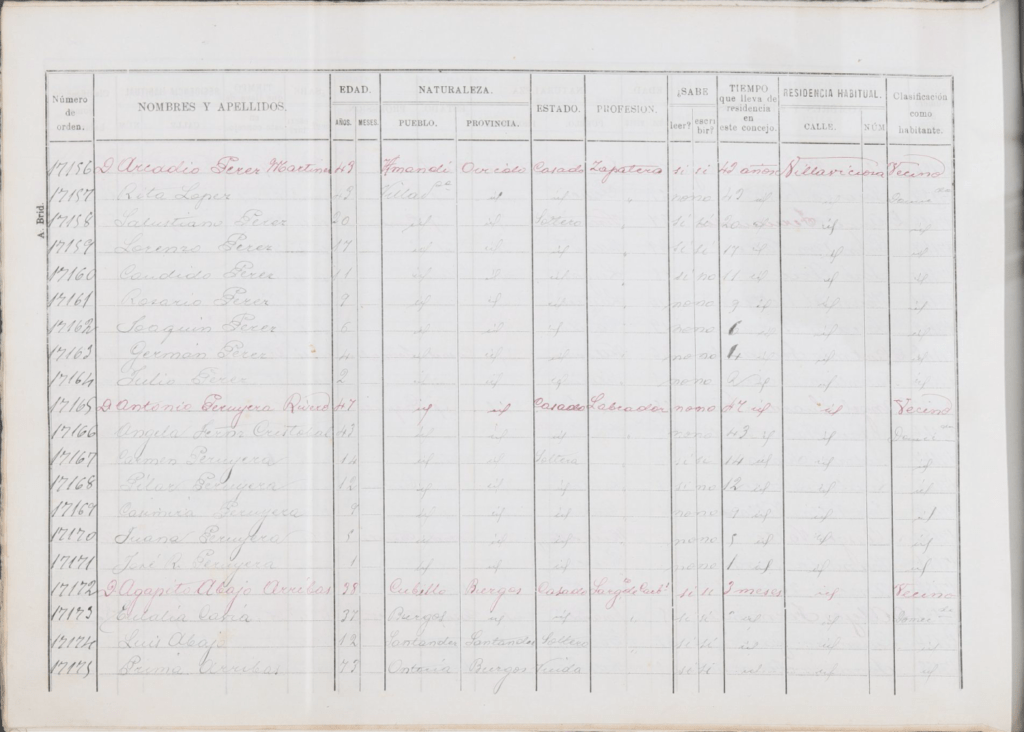 A. Brid.
Número de orden. NOMBRES Y APELLIDOS. EDAD. AÑOS. MESES. NATURALEZA. PUEBLO. PROVINCIA. ESTADO. PROFESION. ¿SABE leer? escribir? TIEMPO que lleva de residencia en este concejo. RESIDENCIA HABITUAL. CALLE. NÚM Clasificación como habitante.
17156 D Arcadio Perez Martinez 49 Amandi Oviedo Casado Zapatero si si 42 años Villaviciosa Vecino
17157 Rita Lopez 42 Villavª id no no 42 id id
17158 Salustiano Perez 20 id id soltero si si 20 id id
17159 Lorenzo Perez 17 id id id si si 17 id id id
17160 Candido Perez 11 id id id si no 11 id id id
17161 Rosario Perez 9 id id id no no 9 id id id
17162 Joaquin Perez 6 id id id no no 6 id id id
17163 Germán Perez 4 id id id no no 4 id id id
17164 Julio Perez 2 id id id no no 2 id id id
17165 D Antonio Peruyera 47 id id Casado Labrador no no 47 id id Vecino
17166 Angela Cristobal 43 id id id no no 43 id id
17167 Carmen Peruyera 14 id id soltera si si 14 id id id
17168 Pilar Peruyera 12 id id id si no 12 id id id
17169 Peruyera 9 id id id no no 9 id id id
17170 Juana Peruyera 5 id id id no no 5 id id id
17171 José R. Peruyera 1 id id id no no 1 id id id
17172 D Agapito Abajo Arribas 38 Cubillo Burgos Casado si si 3 meses id Vecino
17173 Eulalia 37 Burgos id id si si id id
17174 Luis Abajo 12 Santander Santander soltero si si id id id
17175 Arribas 73 Burgos Viuda si si id id id